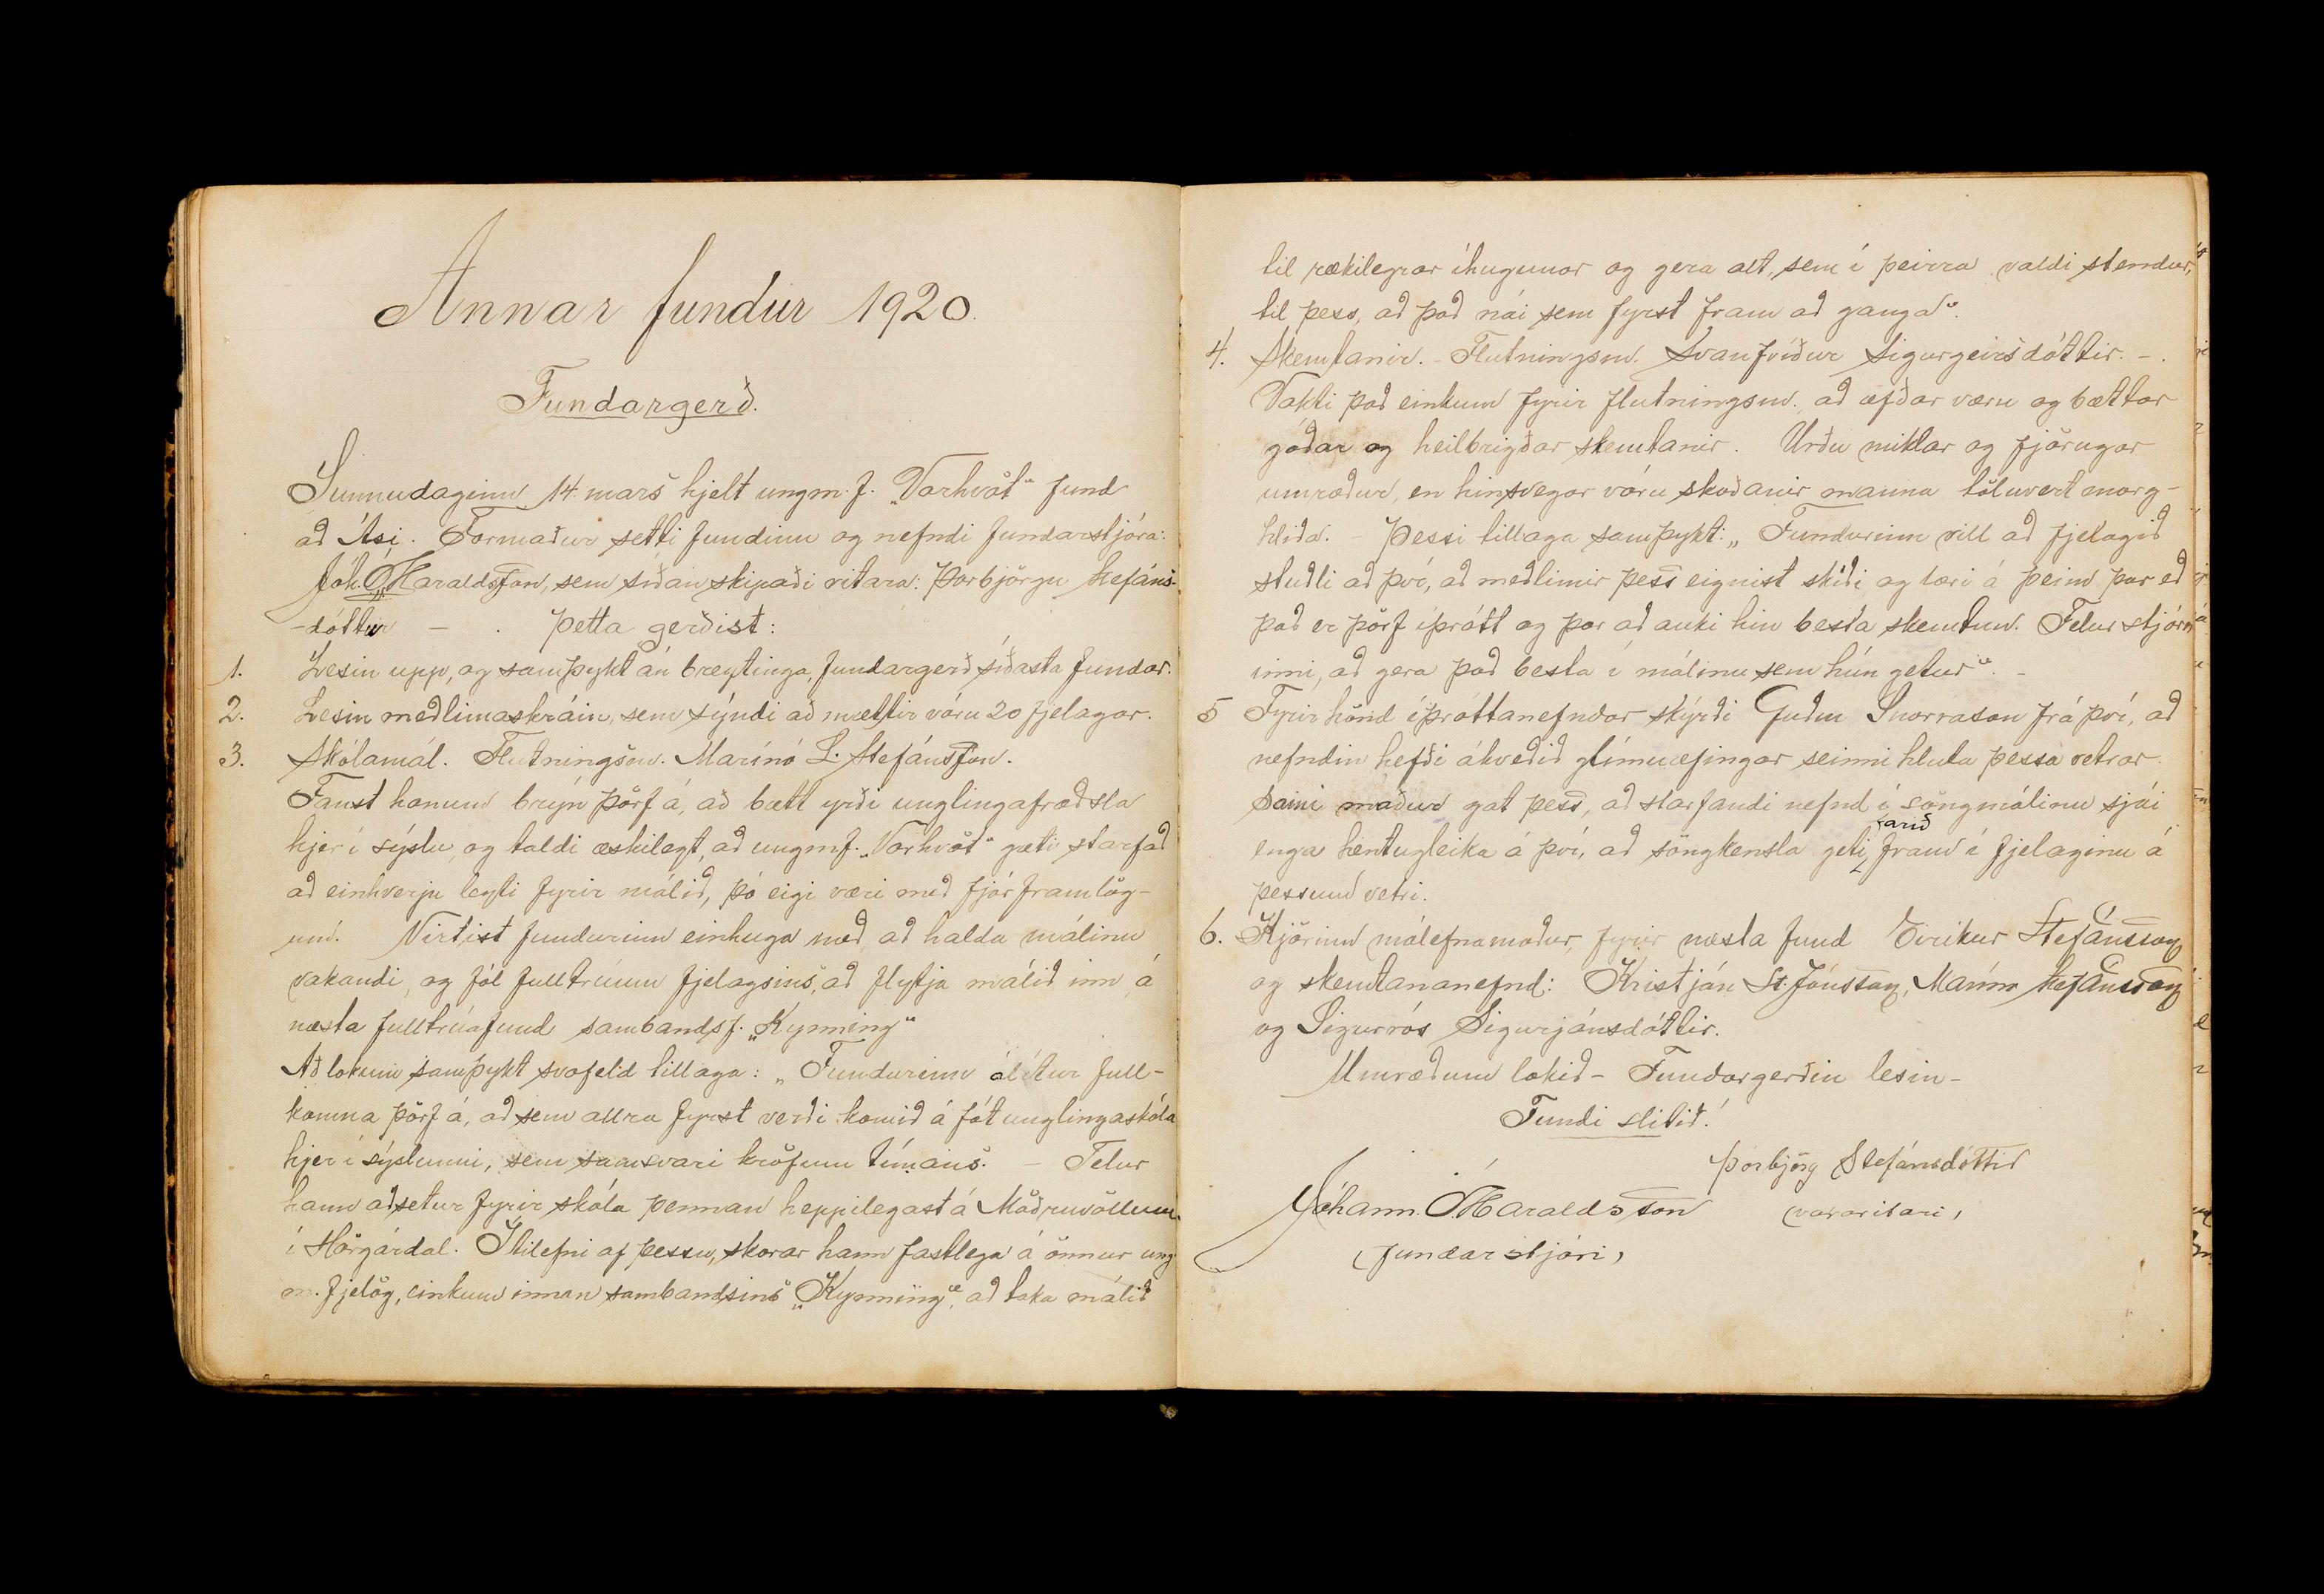 Annar fundur 1920.
Fundargerð.
Sunnudaginn 14. mars hjelt ungm.f. "Vorhvöt" fund
að Ási. Formaður setti fundinn og nefndi fundarstjóra:
Jóh. Ó. Haraldsson, sem síðan skipaði ritara: Þorbjörgu Stefáns-
-dóttur — . Þetta gerðist:
1. Lesin upp, og samþykt án breytinga, fundargerð síðasta fundar.
2. Lesin meðlimaskráin, sem sýndi að mættir vóru 20 fjelagar.
3. Skólamál. Flutningsm. Marínó L. Stefánsson.
Fanst honum brýn þörf á, að bætt yrði unglingafræðsla
hjer í sýslu, og taldi æskilegt, að ungmf. "Vorhvöt" gæti starfað
að einhverju leyti fyrir málið, þó eigi væri með fjárframlög-
um. Virtist fundurinn einhuga með, að halda málinu
vakandi, og fól fulltrúum fjelagsins, að flytja málið inn á
næsta fulltrúafund sambandsf. "Kynning"
Að lokum samþykt svofeld tillaga: "Fundurinn álítur full-
komna þörf á, að sem allra fyrst verði komið á fót unglingaskóla
hjer í sýslunni, sem samsvari kröfum tímans. — Telur
hann aðsetur fyrir skóla þennan heppilegast á Möðruvöllum
í Hörgárdal. Í tilefni af þessu, skorar hann fastlega á önnur ung
m. fjelög, einkum innan sambandsins "Kynning", að taka málið
til rækilegrar íhugunar og gera alt, sem í þeirra valdi stendur,
til þess, að það nái sem fyrst fram að ganga".
4. Skemtanir. - Flutningsm. Svanfríður Sigurgeirsdóttir. - .
Vakti það einkum fyrir flutningsm., að æfðar væru og bættar
góðar og heilbrigðar skemtanir. Urðu miklar og fjörugar
umræður, en hinsvegar vóru skoðanir manna töluvert marg-
hliða. - Þessi tillaga samþykt: "Fundurinn vill að fjelagið
stuðli að því, að meðlimir þess eignist skíði og læri á þeim þar eð
það er þörf íþrótt og þar að auki hin besta skemtun. Felur stjórn
inni, að gera það besta í málinu sem hún getur". -
5 Fyrir hönd íþróttanefndar skýrði Guðm Snorrason frá því, að
nefndin hefði ákveðið glímuæfingar seinni hluta þessa vetrar.
Sami maður gat þess, að starfandi nefnd í söngmálinu sjái
enga hentugleika á því, að söngkensla geti farið fram í fjelaginu á
þessum vetri.
6. Kjörinn málefnamaður, fyrir næsta fund Eiríkur Stefánsson
og skemtananefnd: Kristján St. Jónsson, Marínó Stefánsson
og Sigurrós Sigurjónsdóttir.
Umræðum lokið - Fundargerðin lesin -
Fundi slitið!
Þorbjörg Stefánsdóttir
Jóhann. Ó. Haraldsson (vararitari)
(fundarstjóri)